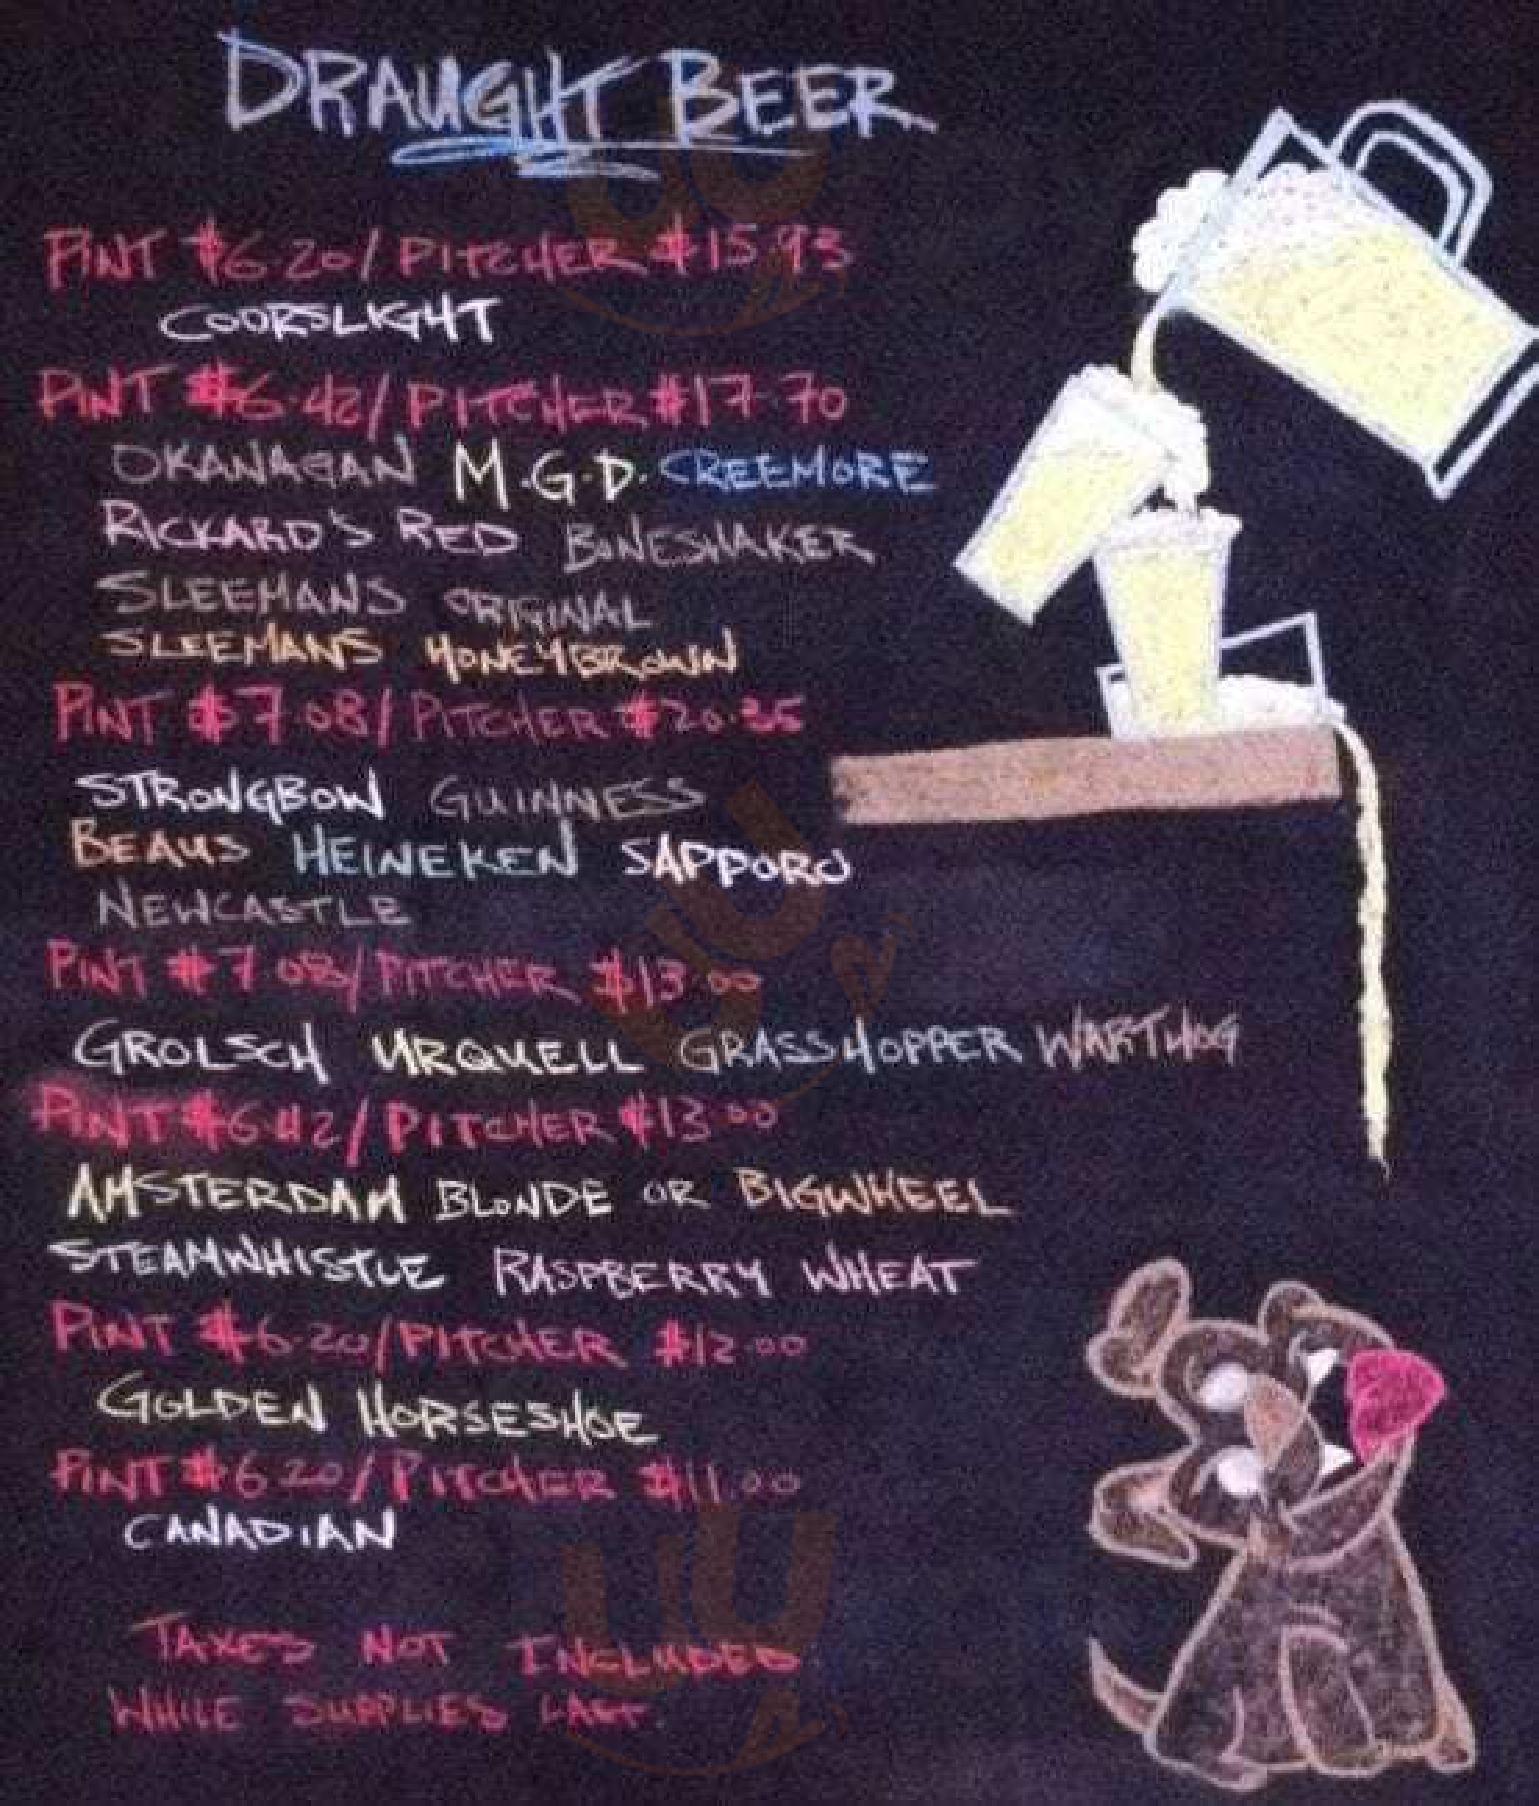 DRAUGHT BEER
PINT $6.20/PITCHER $15.93
COORSLIGHT
PINT $6.42/PITCHER $17.70
OKANAGAN M.G.D. CREEMORE
RICKARD'S RED BONESHAKER
SLEEMANS ORIGINAL
SLEEMANS HONEYBROWN
PINT $7.08/PITCHER $20.35
STRONGBOW GUINNESS
BEAUS HEINEKEN SAPPORO
NEWCASTLE
PINT $7.08/PITCHER $13.00
GROLSCH URQUELL GRASSHOPPER WARTHOG
PINT $6.42/PITCHER $13.00
AMSTERDAM BLONDE OR BIGWHEEL
STEAMWHISTLE RASPBERRY WHEAT
PINT $6.20/PITCHER $12.00
GOLDEN HORSESHOE
PINT $6.20/PITCHER $11.00
CANADIAN
TAXES NOT INCLUDED
WHILE SUPPLIES LAST.